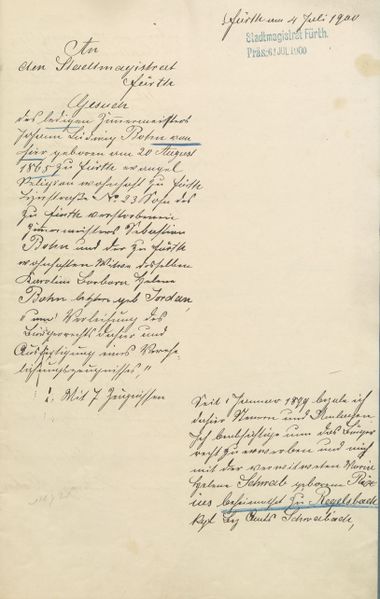 Fürth am 4 Juli 1900
Stadtmagistrat Fürth.
Präs: 6 JUL 1900
An
den Stadtmagistrat
Fürth
Gesuch
des ledigen Zimmermeisters
Johann Ludwig Bohn von
hier geboren am 20 August
1865 zu Fürth evangel
Religion wohnhaft zu Fürth
No 23 Sohn des
zu Fürth verstorbenen
Zimmermeisters Sebastian
Bohn und der zu Fürth
wohnhaften Witwe desselben
Karolin Barbara Helene
Bohn letztere geb Jordan,
"um Verleihung des
Bürgerrechts dahier und
Ausfertigung eines Verehe-
lichungszeugnisses"
Mit 7 Zeugnissen
Seit 1 Januar 1899 bezale ich
dahier Steuern und Umlagen
Ich beabsichtige nun das Bürger
recht zu erwerben und mich
mit der verwitweten Maria
Helene Schwab geborene
beheimathet zu Regelsbach
Kgl Bez Amts Schwabach,